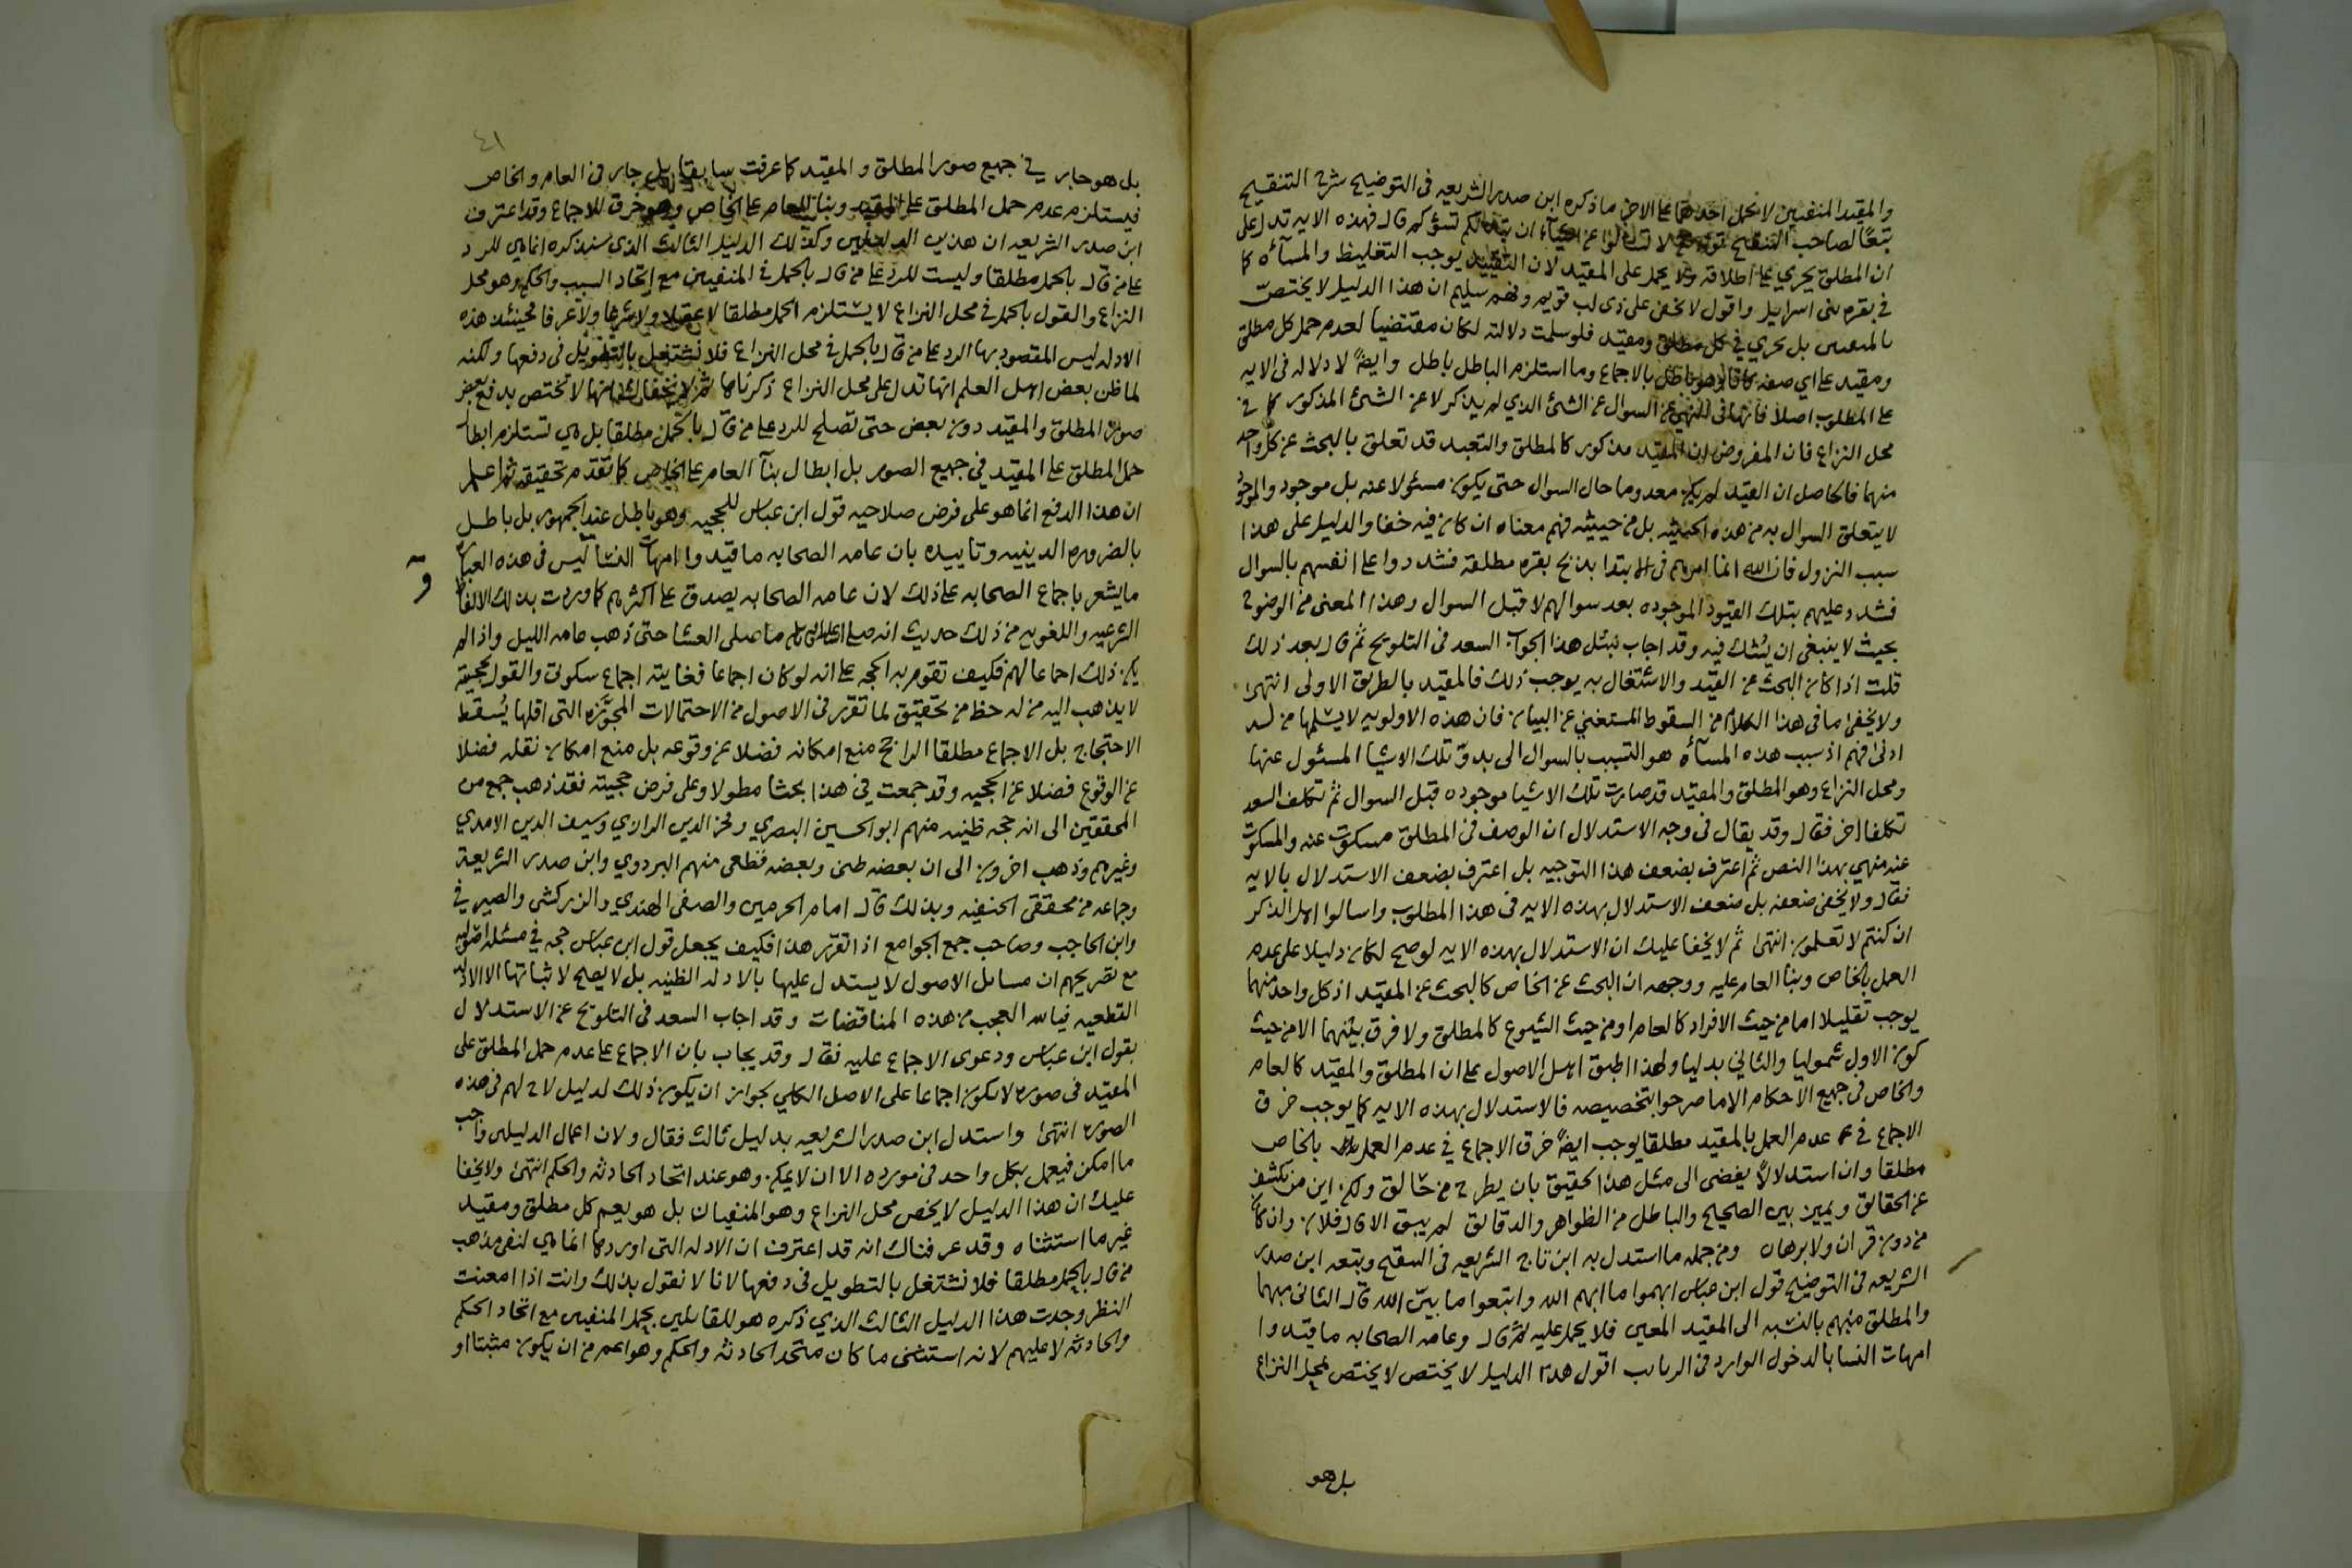 والمقيد المنفيين لا نحمل احدهما على الاخر ما ذكره ابن صدر الشريعه في التوضيح شرح التنقيح
تبعًا لصاحب التنقيح قوله لا تسالوا عن اشياء ان تبد لكم تسؤكم قال فهذه الايه تدل على
ان المطلق يجري على اطلاقه ولا يحمل على المقيد لان التقييد يوجب التغليظ والمسآءه كما
في بقره بني اسرايل واقول لا يخفى على ذي لب قويم وفهم سليم ان هذا الدليل لا يختصّ
بالمنفيين بل يجري في كل مطلق ومقيد فلو سلمت دلالته لكان مقتضيا لعدم حمل كل مطلق
ومقيد على اي صفه كانا وهو باطل بالاجماع وما استلزم الباطل باطل وايضًا لا دلاله في الايه
على المطلوب اصلا فانها في النهي عن السوال عن الشئ الذي لم يذكر لا عن الشئ المذكور كما في
محل النزاع فان المفروض ان المقيد مذكور كالمطلق والتعبد قد تعلق بالبحث عن كل واحد
منهما فالحاصل ان القيد لم يكن معدوما حال السوال حتى يكون مسئولا عنه بل موجود والموجود
لا يتعلق السوال به من هذه الحيثيه بل من حيثيه فهم معناه ان كان فيه خفا والدليل على هذا
سبب النزول فان الله انما امرهم في الابتدا بذبح بقره مطلقة فشددوا على انفسهم بالسوال
فشدد عليهم بتلك القيود الموجوده بعد سوالهم لا قبل السوال وهذا المعنى من الوضوح
بحيث لا ينبغي ان يشك فيه وقد اجاب بمثل هذا الجواب السعد في التلويح ثم قال بعد ذلك
قلت اذا كان البحث عن القيد والاشتغال به يوجب ذلك فالمقيد بالطريق الاولى انتهى
ولا يخفى ما في هذا الكلام من السقوط المستغني عن البيان فان هذه الاولويه لا يسلمها من له
ادنى فهم اذ سبب هذه المسآءه هو التسبب بالسوال الى بدوّ تلك الاشيا المسئول عنها
ومحل النزاع وهو المطلق والمقيد قد صارت تلك الاشيا موجوده قبل السوال ثم تكلف السعد
تكلفا اخر فقال وقد يقال في وجه الاستدلال ان الوصف في المطلق مسكوت عنه والمسكوت
عنه منهي بهذا النص ثم اعترف بضعف هذا التوجيه بل اعترف بضعف الاستدلال بالايه
فقال ولا يخفى ضعفه بل ضعف الاستدلال بهذه الايه في هذا المطلوب واسالوا اهل الذكر
ان كنتم لا تعلمون انتهى ثم لا يخفا عليك ان الاستدلال بهذه الايه لو صح لكان دليلا على عدم
العمل بالخاص وبنا العام عليه ووجهه ان البحث عن الخاص كالبحث عن المقيد اذ كل واحد منهما
يوجب تقليلا اما من حيث الافراد كالعام او من حيث الشيوع كالمطلق ولا فرق بينهما الا من حيث
كون الاول شموليا والثاني بدليا ولهذا اطبق اهل الاصول على ان المطلق والمقيد كالعام
والخاص في جميع الاحكام الا ما صرحوا بتخصيصه فالاستدلال بهذه الايه كما يوجب خرق
الاجماع في عدم العمل بالمقيد مطلقا يوجب ايضًا خرق الاجماع في عدم العمل بالخاص
مطلقا وان استدلالاً يفضى الى مثل هذا لحقيق بان يطرح من حالق ولكن اين من يكشف
عن الحقائق ويميز بين الصحيح والباطل من الظواهر والدقائق لم يبق الا قال فلان وان كان
من دون قران ولا برهان ومن جمله ما استدل به ابن تاج الشريعه في التنقيح وتبعه ابن صدر
الشريعه في التوضيح قول ابن عباس ابهموا ما ابهم الله واتبعوا ما بيّن الله قال الثاني مبهما
والمطلق مبهم بالنسبه الى المقيد المعين فلا يحمل عليه ثم قال وعامه الصحابه ما قيدوا
امهات النسا بالدخول الوارد في الربايب اقول هذا الدليل لا يختص لا يختص بمحل النزاع
بل هو
٤١
بل هو جار في جميع صور المطلق والمقيد كما عرفت سابقا بل جار في العام والخاص
فيستلزم عدم حمل المطلق على المقيد وبنا العام على الخاص وهو خرق للاجماع وقد اعترف
ابن صدر الشريعه ان هذين الدليلين وكذلك الدليل الثالث الذي سنذكره انما هي للرد
على من قال بالحمل مطلقا وليست للرد على من قال بالحمل في المنفيين مع اتحاد السبب والحكم وهو محل
النزاع والقول بالحمل في محل النزاع لا يستلزم الحمل مطلقا لا عقلا ولا شرعا ولا عرفا فحينئذ هذه
الادله ليس المقصود بها الرد على من قال بالحمل في محل النزاع فلا نشتغل بالتطويل في دفعها ولكنه
لما ظن بعض اهل العلم انها تدل على محل النزاع ذكرناها ثم لا يخفاك انها لا تختص بدفع بعض
صور المطلق والمقيد دون بعض حتى تصلح للرد على من قال بالحمل مطلقا بل هي تستلزم ابطال
حمل المطلق على المقيد في جميع الصور بل ابطال بنآ العام على الخاص كما تقدم تحقيقه ثم اعلم
ان هذا الدفع انما هو على فرض صلاحيه قول ابن عباس للحجيه وهو باطل عند الجمهور بل باطل
بالضروره الدينيه وتاييده بان عامه الصحابه ما قيدوا امهات النسآ ليس في هذه العباره
ما يشعر باجماع الصحابه على ذلك لان عامه الصحابه يصدق على اكثرهم كما وردت بذلك الالفاظ
الشرعيه واللغويه من ذلك حديث انه صلى الله عليه وسلم ما صلى العشا حتى ذهب عامه الليل واذا لم
يكن ذلك اجماعا لهم فكيف تقوم به الحجه على انه لو كان اجماعا فغايته اجماع سكوتي والقول بحجيته
لا يذهب اليه من له حظ من تحقيق لما تقرر في الاصول من الاحتمالات المجوّزه التي اقلها يُسقط
الاحتجاج بل الاجماع مطلقا الراجح منع امكانه فضلا عن وقوعه بل منع امكان نقله فضلا
عن الوقوع فضلا عن الحجيه وقد جمعت في هذا بحثا مطولا وعلى فرض حجيته فقد ذهب جمع من
المحققين الى انه حجه ظنيه منهم ابو الحسين البصري وفخر الدين الرازي وسيف الدين الامدي
وغيرهم وذهب اخرون الى ان بعضه ظني وبعضه قطعي منهم البزدوي وابن صدر الشريعة
وجماعه من محققي الحنفيه وبذلك قال امام الحرمين والصفي الهندي والزركشي والصيرفي
وابن الحاجب وصاحب جمع الجوامع اذا تقرر هذا فكيف يجعل قول ابن عباس حجه في مسئله اصوليه
مع تصريحهم ان مسايل الاصول لا يستدل عليها بالادله الظنيه بل لا يصلح لاثباتها الا الادله
القطعيه فيالله العجب من هذه المناقضات وقد اجاب السعد في التلويح عن الاستدلال
بقول ابن عباس ودعوى الاجماع عليه فقال وقد يجاب بان الاجماع على عدم حمل المطلق على
المقيد في صورة لا يكون اجماعا على الاصل الكلي لجواز ان يكون ذلك لدليل لاح لهم في هذه
الصوره انتهى واستدل ابن صدر الشريعه بدليل ثالث فقال ولان اعمال الدليلين واجب
ما امكن فيعمل بكل واحد في مورده الا ان لا يمكن وهو عند اتحاد الحادثه والحكم انتهى ولا يخفا
عليك ان هذا الدليل لا يخص محل النزاع وهو المنفيان بل هو يعم كل مطلق ومقيد
غير ما استثناه وقد عرفناك انه قد اعترف ان الادله التي اوردها انما هي لنفي مذهب
من قال بالحمل مطلقا فلا نشتغل بالتطويل في دفعها لانا لا نقول بذلك وانت اذا امعنت
النظر وجدت هذا الدليل الثالث الذي ذكره هو للقايلين بحمل المنفيين مع اتحاد الحكم
والحادثه لا عليهم لانه استثنى ما كان متحد الحادثه والحكم وهو اعم من ان يكون مثبتا او